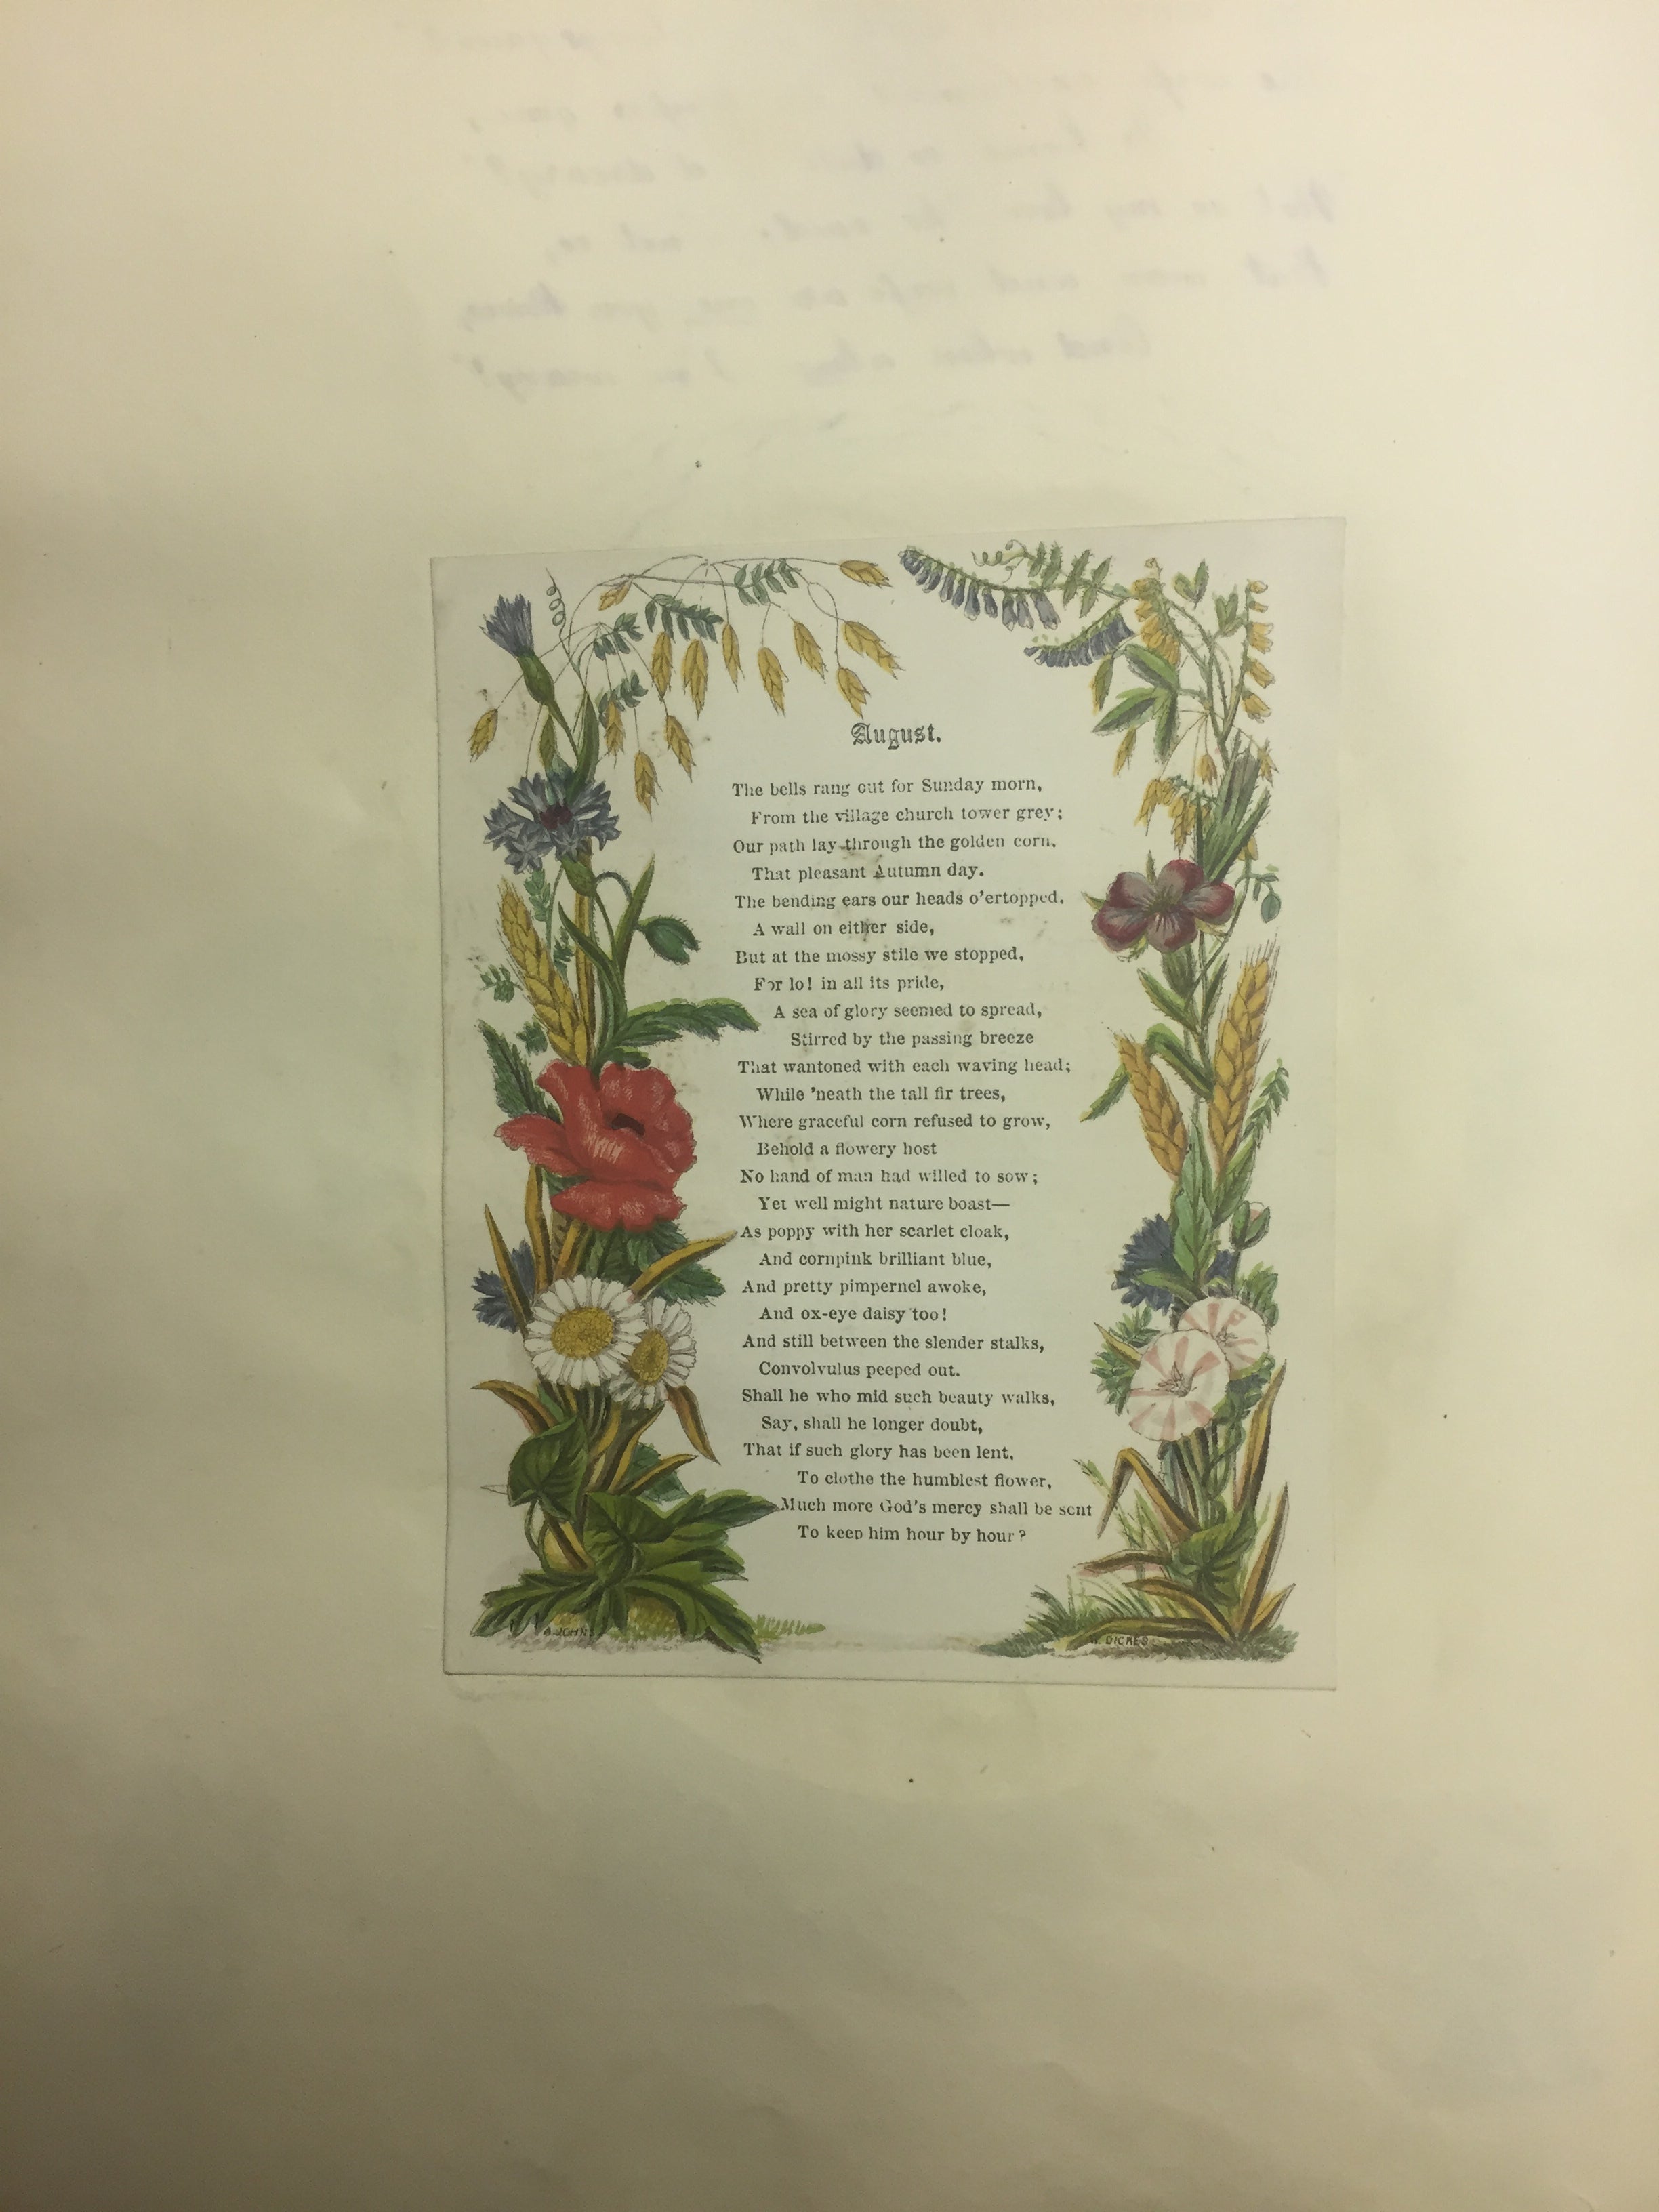 August.
The bells rang out for Sunday morn,
From the village church tower grey;
Our path lay through the golden corn,
That pleasant Autumn day.
The bending ears our heads o'ertopped,
A wall on either side,
But at the mossy stile we stopped,
For lo! in all its pride,
A sea of glory seemed to spread,
Stirred by the passing breeze
That wantoned with each waving head;
While 'neath the tall fir trees,
Where graceful corn refused to grow,
Behold a flowery host
No hand of man had willed to sow;
Yet well might nature boast—
As poppy with her scarlet cloak,
And cornpink brilliant blue,
And pretty pimpernel awoke,
And ox-eye daisy too!
And still between the slender stalks,
Convolvulus peeped out.
Shall he who mid such beauty walks,
Say, shall he longer doubt,
That if such glory has been lent,
To clothe the humblest flower,
Much more God's mercy shall be sent
To keep him hour by hour?
JOHNS
W. DICKES